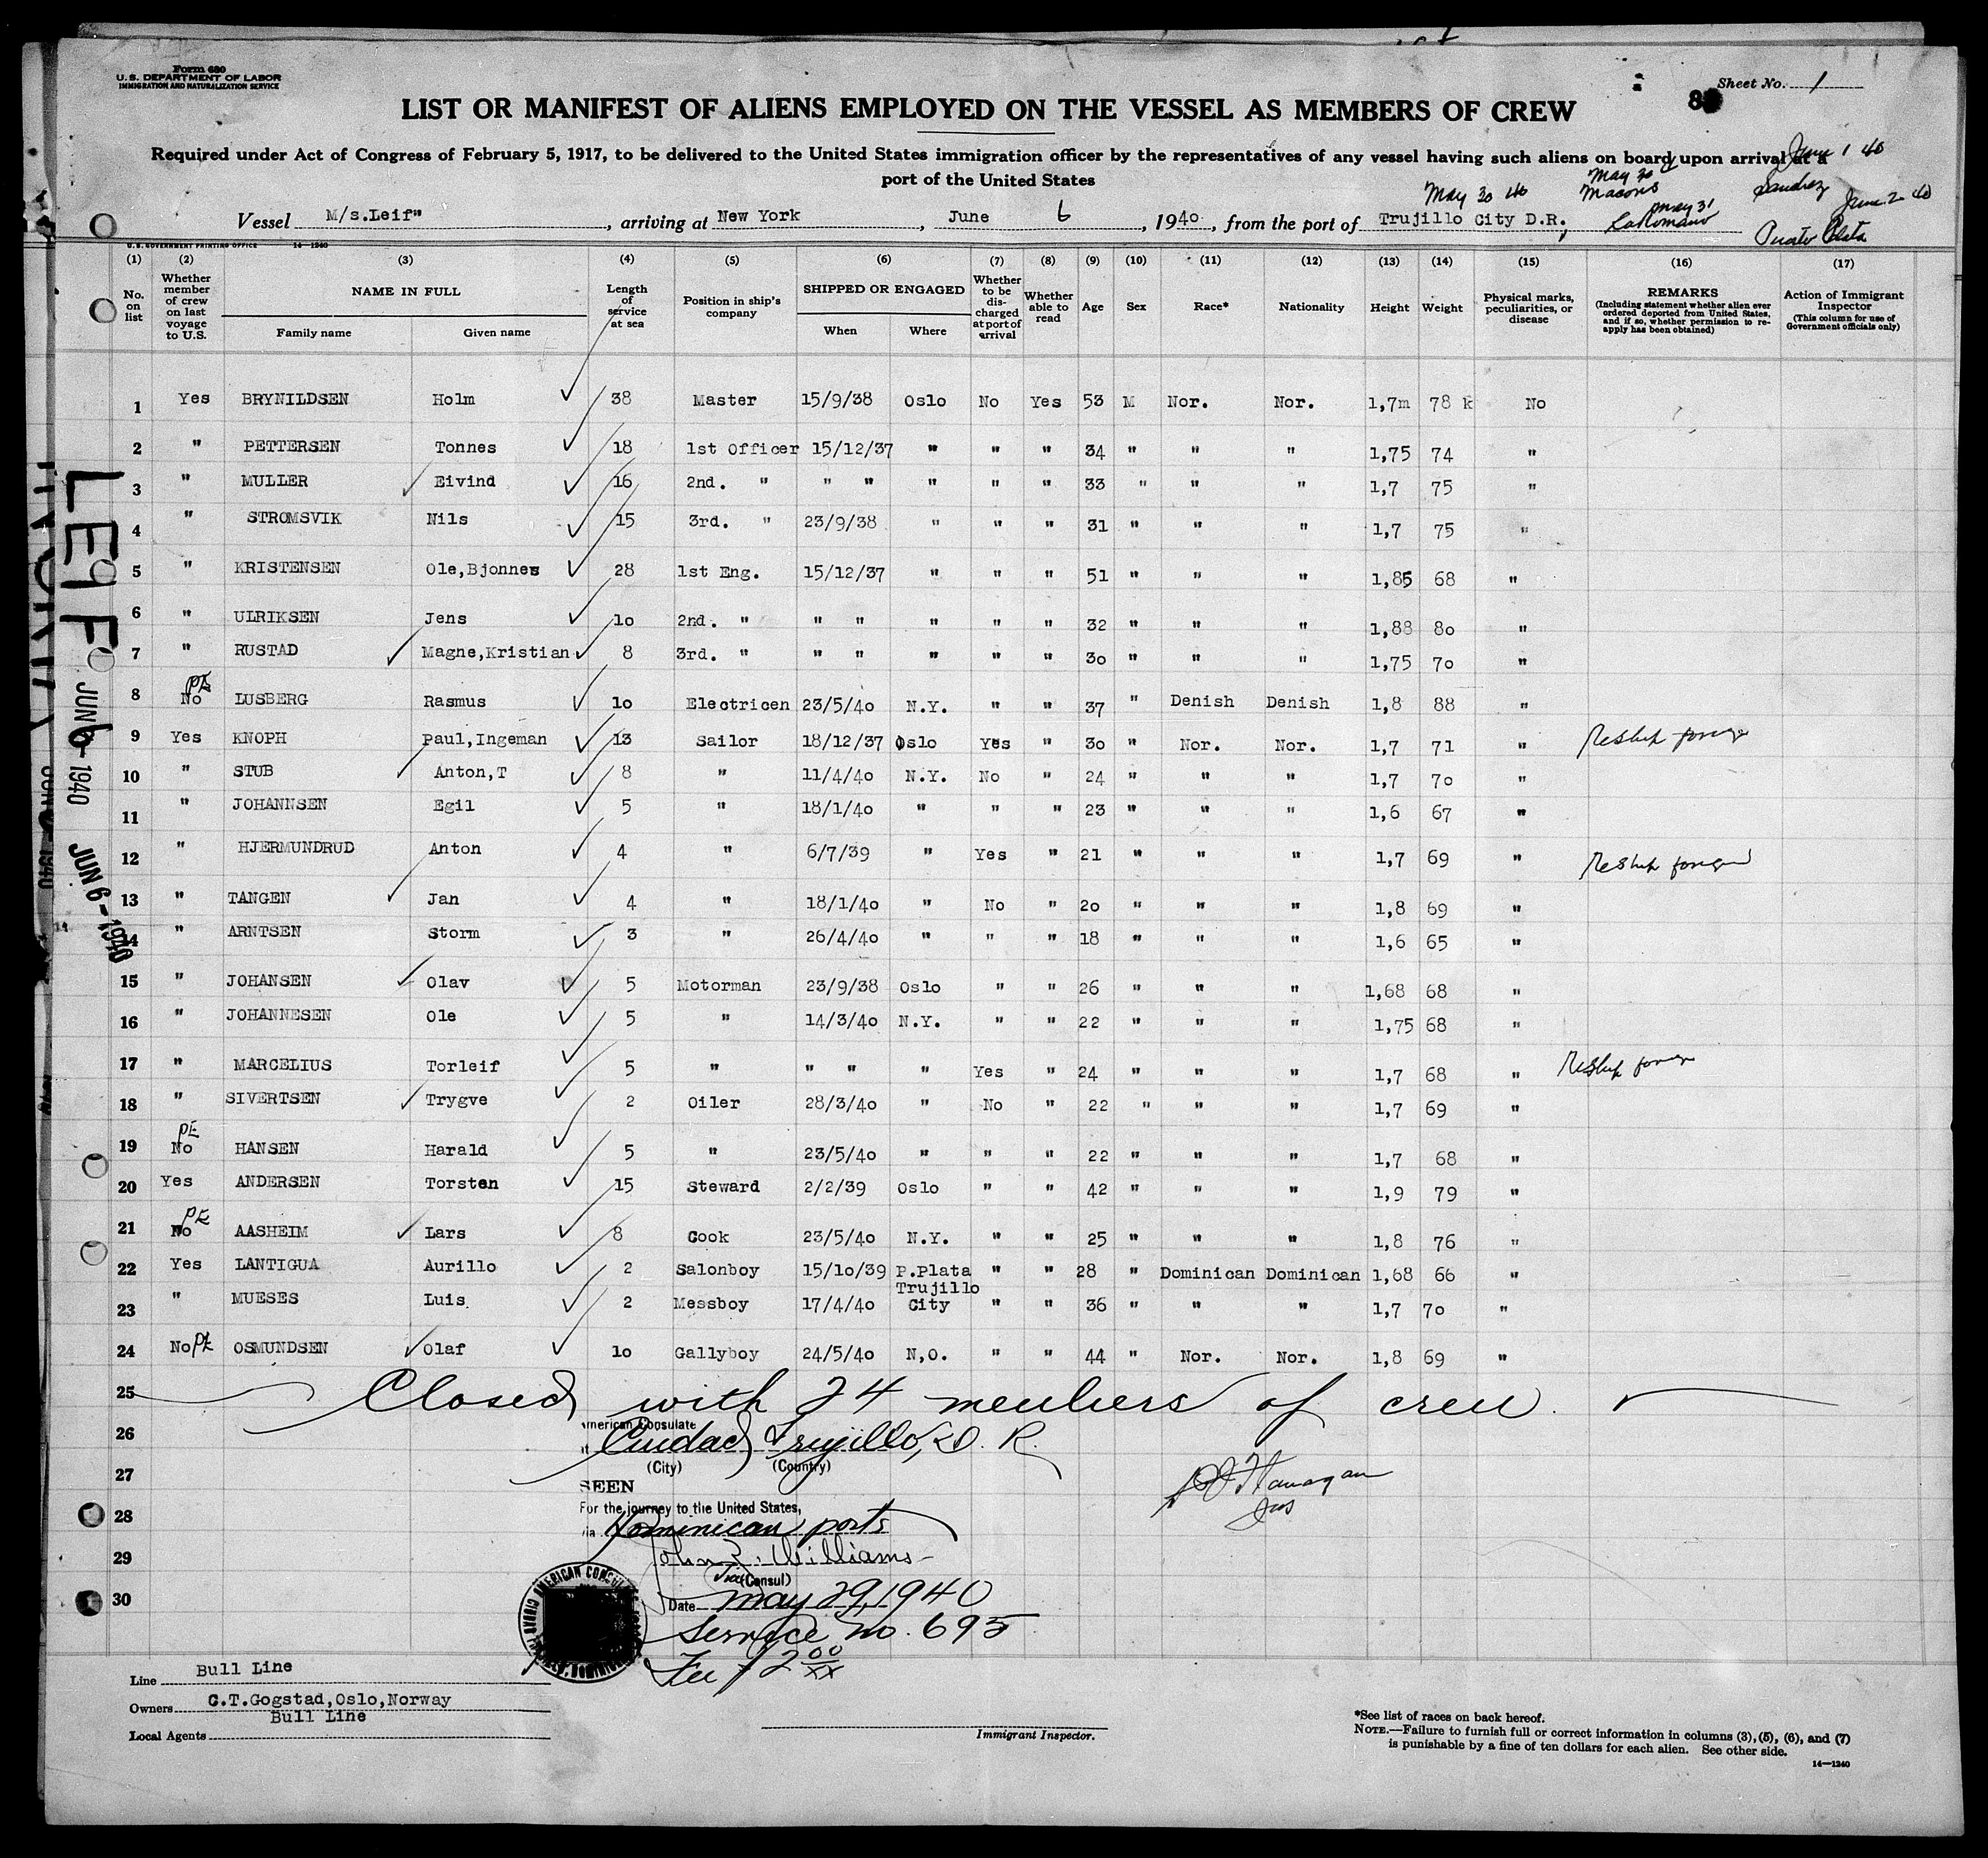 Form 680
U. S. DEPARTMENT OF LABOR
IMMIGRATION AND NATURALIZATION SERVICE
Sheet No. 1
LIST OR MANIFEST OF ALIENS EMPLOYED ON THE VESSEL AS MEMBERS OF CREW
Required under Act of Congress of February 5, 1917, to be delivered to the United States immigration officer by the representatives of any vessel having such aliens on board upon arrival at a
port of the United States
June 1 40
May 30 40 May 30 Macoris Sanchez June 2 40
Vessel M/s.Leif", arriving at New York, June 6, 1940, from the port of Trujillo City D.R.,
May 31 LaRomano Puerto Plata
U. S. GOVERNMENT PRINTING OFFICE 14—1240
(1) (2) (3) (4) (5) (6) (7) (8) (9) (10) (11) (12) (13) (14) (15) (16) (17)
No. on list
Whether member of crew on last voyage to U.S.
NAME IN FULL
Family name Given name
Length of service at sea
Position in ship's company
SHIPPED OR ENGAGED
When Where
Whether to be discharged at port of arrival
Whether able to read
Age
Sex
Race*
Nationality
Height
Weight
Physical marks, peculiarities, or disease
REMARKS
(Including statement whether alien ever ordered deported from United States, and if so, whether permission to re-apply has been obtained)
Action of Immigrant Inspector
(This column for use of Government officials only)
1 Yes BRYNILDSEN Holm 38 Master 15/9/38 Oslo No Yes 53 M Nor. Nor. 1,7m 78 k No
2 " PETTERSEN Tonnes 18 1st Officer 15/12/37 " " " 34 " " " 1,75 74 "
3 " MULLER Eivind 16 2nd. " " " " " " 33 " " " 1,7 75 "
4 " STROMSVIK Nils 15 3rd. " 23/9/38 " " " 31 " " " 1,7 75 "
5 " KRISTENSEN Ole,Bjonnes 28 1st Eng. 15/12/37 " " " 51 " " " 1,85 68 "
6 " ULRIKSEN Jens 10 2nd. " " " " " " 32 " " " 1,88 80 "
7 " RUSTAD Magne,Kristian 8 3rd. " " " " " " 30 " " " 1,75 70 "
8 No PE LUSBERG Rasmus 10 Electricen 23/5/40 N.Y. " " 37 " Denish Denish 1,8 88 "
9 Yes KNOPH Paul,Ingeman 13 Sailor 18/12/37 Oslo Yes " 30 " Nor. Nor. 1,7 71 " Reship foreign
10 " STUB Anton,T 8 " 11/4/40 N.Y. No " 24 " " " 1,7 70 "
11 " JOHANNSEN Egil 5 " 18/1/40 " " " 23 " " " 1,6 67 "
12 " HJERMUNDRUD Anton 4 " 6/7/39 " Yes " 21 " " " 1,7 69 " Reship foreign
13 " TANGEN Jan 4 " 18/1/40 " No " 20 " " " 1,8 69 "
14 " ARNTSEN Storm 3 " 26/4/40 " " " 18 " " " 1,6 65 "
15 " JOHANSEN Olav 5 Motorman 23/9/38 Oslo " " 26 " " " 1,68 68 "
16 " JOHANNESEN Ole 5 " 14/3/40 N.Y. " " 22 " " " 1,75 68 "
17 " MARCELIUS Torleif 5 " " " " Yes " 24 " " " 1,7 68 " Reship foreign
18 " SIVERTSEN Trygve 2 Oiler 28/3/40 " No " 22 " " " 1,7 69 "
19 No PE HANSEN Harald 5 " 23/5/40 " " " 22 " " " 1,7 68 "
20 Yes ANDERSEN Torsten 15 Steward 2/2/39 Oslo " " 42 " " " 1,9 79 "
21 No PE AASHEIM Lars 8 Cook 23/5/40 N.Y. " " 25 " " " 1,8 76 "
22 Yes LANTIGUA Aurillo 2 Salonboy 15/10/39 P.Plata " " 28 " Dominican Dominican 1,68 66 "
23 " MUESES Luis 2 Messboy 17/4/40 Trujillo City " " 36 " " " 1,7 70 "
24 No PE OSMUNDSEN Olaf 10 Gallyboy 24/5/40 N,O. " " 44 " Nor. Nor. 1,8 69 "
25 Closed with 24 members of crew.
26
27
28
29
30
American Consulate
Ciudad Trujillo, D. R.
(City) (Country)
SEEN
For the journey to the United States,
via Dominican ports
John R. Williams
Vice (Consul)
Date May 29, 1940
Service no. 695
Fee $2 00/xx
LEIF
JUN 6 - 1940
JUN 6 - 1940
Line Bull Line
Owners C.T.Gogstad,Oslo,Norway
Local Agents Bull Line
Immigrant Inspector.
*See list of races on back hereof.
NOTE.—Failure to furnish full or correct information in columns (3), (5), (6), and (7)
is punishable by a fine of ten dollars for each alien. See other side.
14—1240